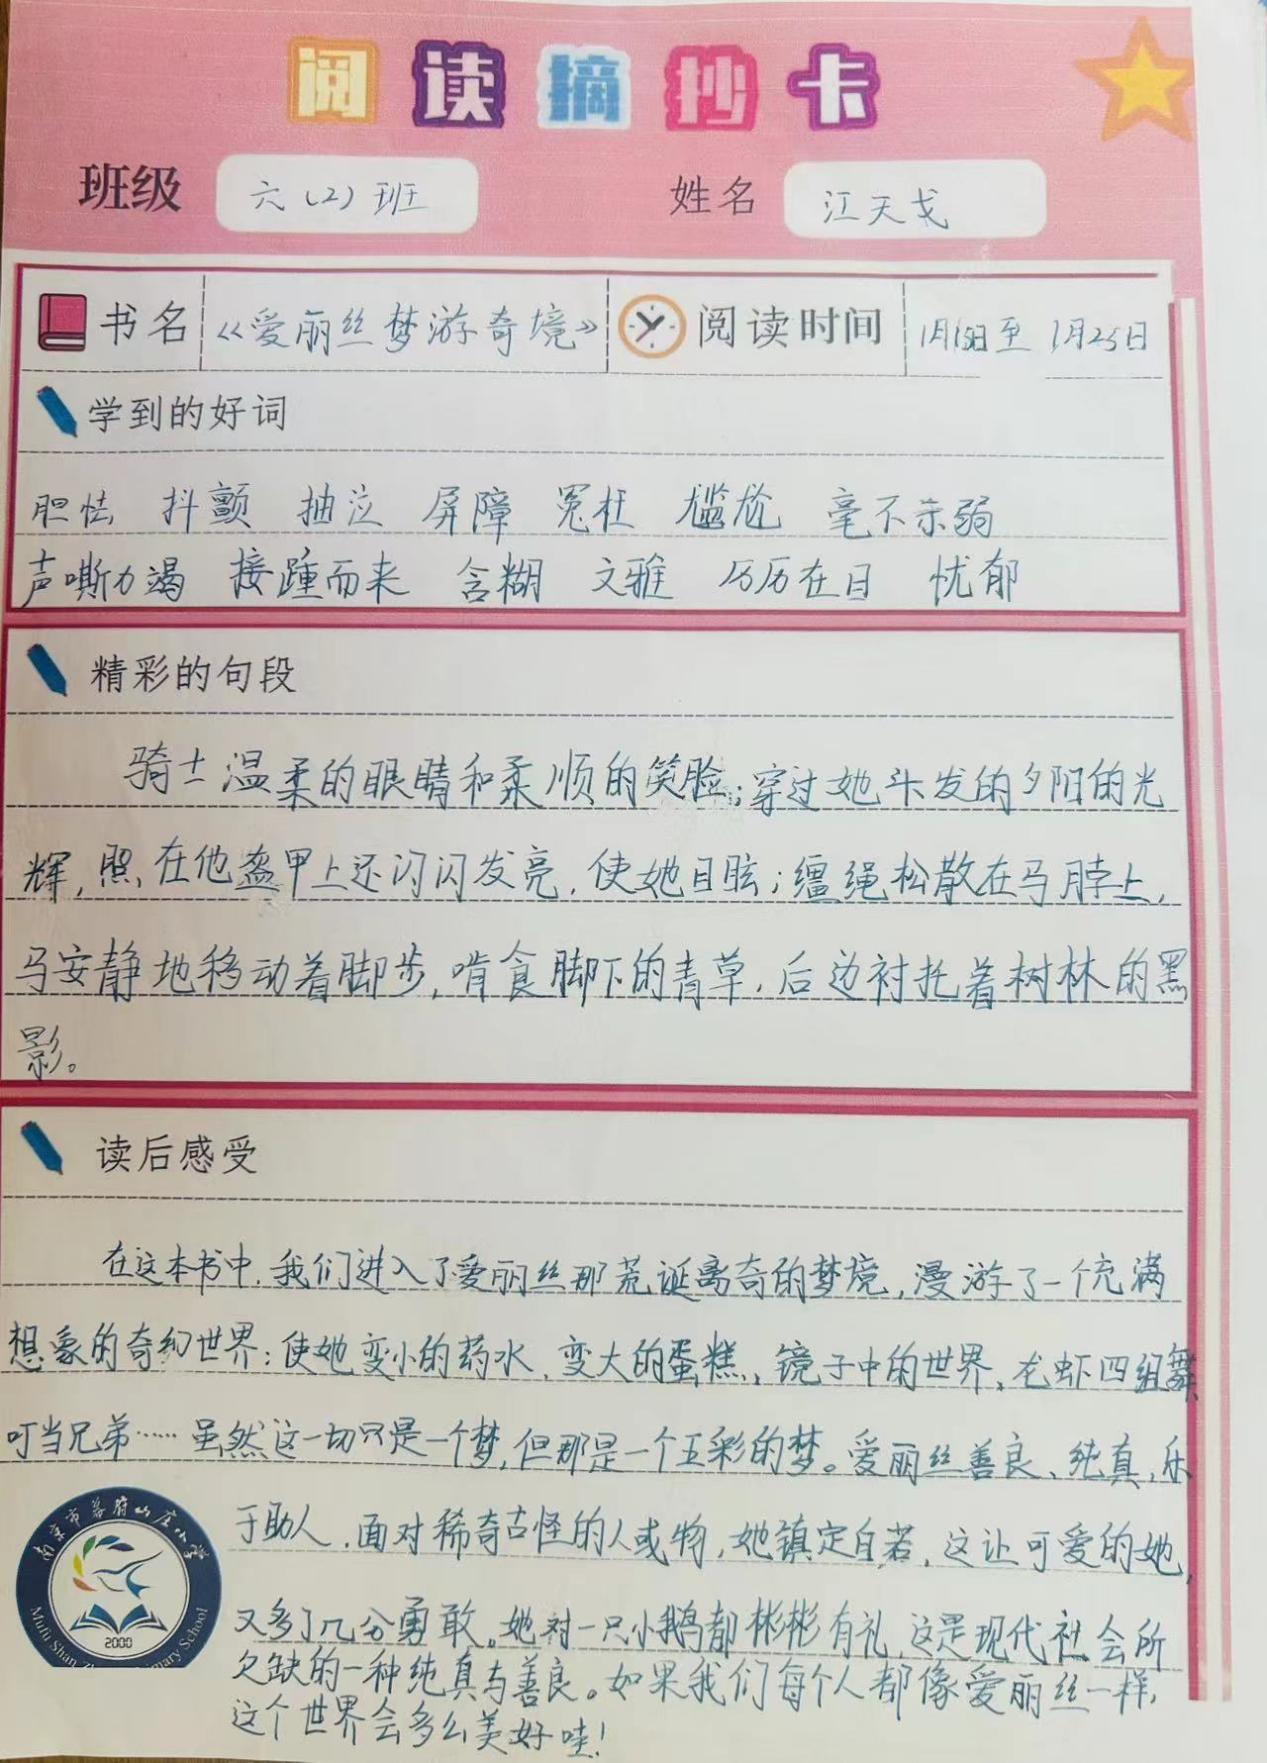 阅读摘抄卡
班级 六(2)班 姓名 江天戈
书名 《爱丽丝梦游奇境》 阅读时间 1月15日至 1月25日
学到的好词
胆怯 抖颤 抽泣 屏障 冤枉 尴尬 毫不示弱
声嘶力竭 接踵而来 含糊 文雅 历历在目 忧郁
精彩的句段
骑士温柔的眼睛和柔顺的笑脸;穿过她头发的夕阳的光
辉,照在他盔甲上还闪闪发亮,使她目眩;缰绳松散在马脖上,
马安静地移动着脚步,啃食脚下的青草,后边衬托着树林的黑
影。
读后感受
在这本书中,我们进入了爱丽丝那荒诞离奇的梦境,漫游了一个充满
想象的奇幻世界:使她变小的药水、变大的蛋糕、镜子中的世界、龙虾四组舞
叮当兄弟……虽然这一切只是一个梦,但那是一个五彩的梦。爱丽丝善良、纯真,乐
于助人,面对稀奇古怪的人或物,她镇定自若,这让可爱的她,
又多了几分勇敢。她对一只小鹅都彬彬有礼,这是现代社会所
欠缺的一种纯真与善良。如果我们每个人都像爱丽丝一样,
这个世界会多么美好哇!
南京市幕府山庄小学
Mufu Shan Zh mary School
2000